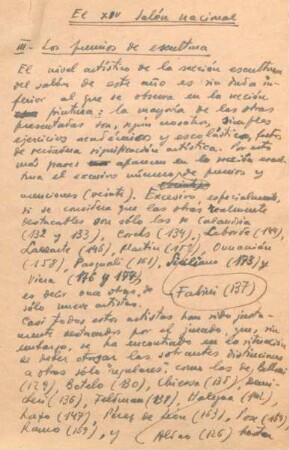 El XIV Salón Nacional
III - Los premios de escultura
El nivel artístico de la sección escultura
del salón de este año es sin duda in-
ferior al que se observa en la sección
pintura: la mayoría de las obras
presentadas son, según nosotros, simples
ejercicios académicos y escolásticos, faltos
de verdadera significación artística. Por esto
más parece aparecen en la sección escul-
tura el excesivo número de premios y
menciones (veinte). Excesivo, especialmente,
si se considera que las obras realmente
destacables son sólo las de Calabrisa
(132 y 133), Corcho (134), Laborde (144),
(146), Martín (152),
(158), Pasquali (161), (173) y
Viera (176 y 177),
es decir once obras, de Fabini (137)
sólo nueve artistas.
Casi todos estos artistas han sido justa-
mente destacados por el jurado que, sin
embargo, se ha encontrado en la situación
de deber otorgar las sobrantes distinciones
a obras sólo "regulares", como las de
(129), Botalo (130), Chiesa (135),
(136), Feldman (138), (142),
(147), Pérez de León (163), Pose (164)
Ramos (169), y (126)